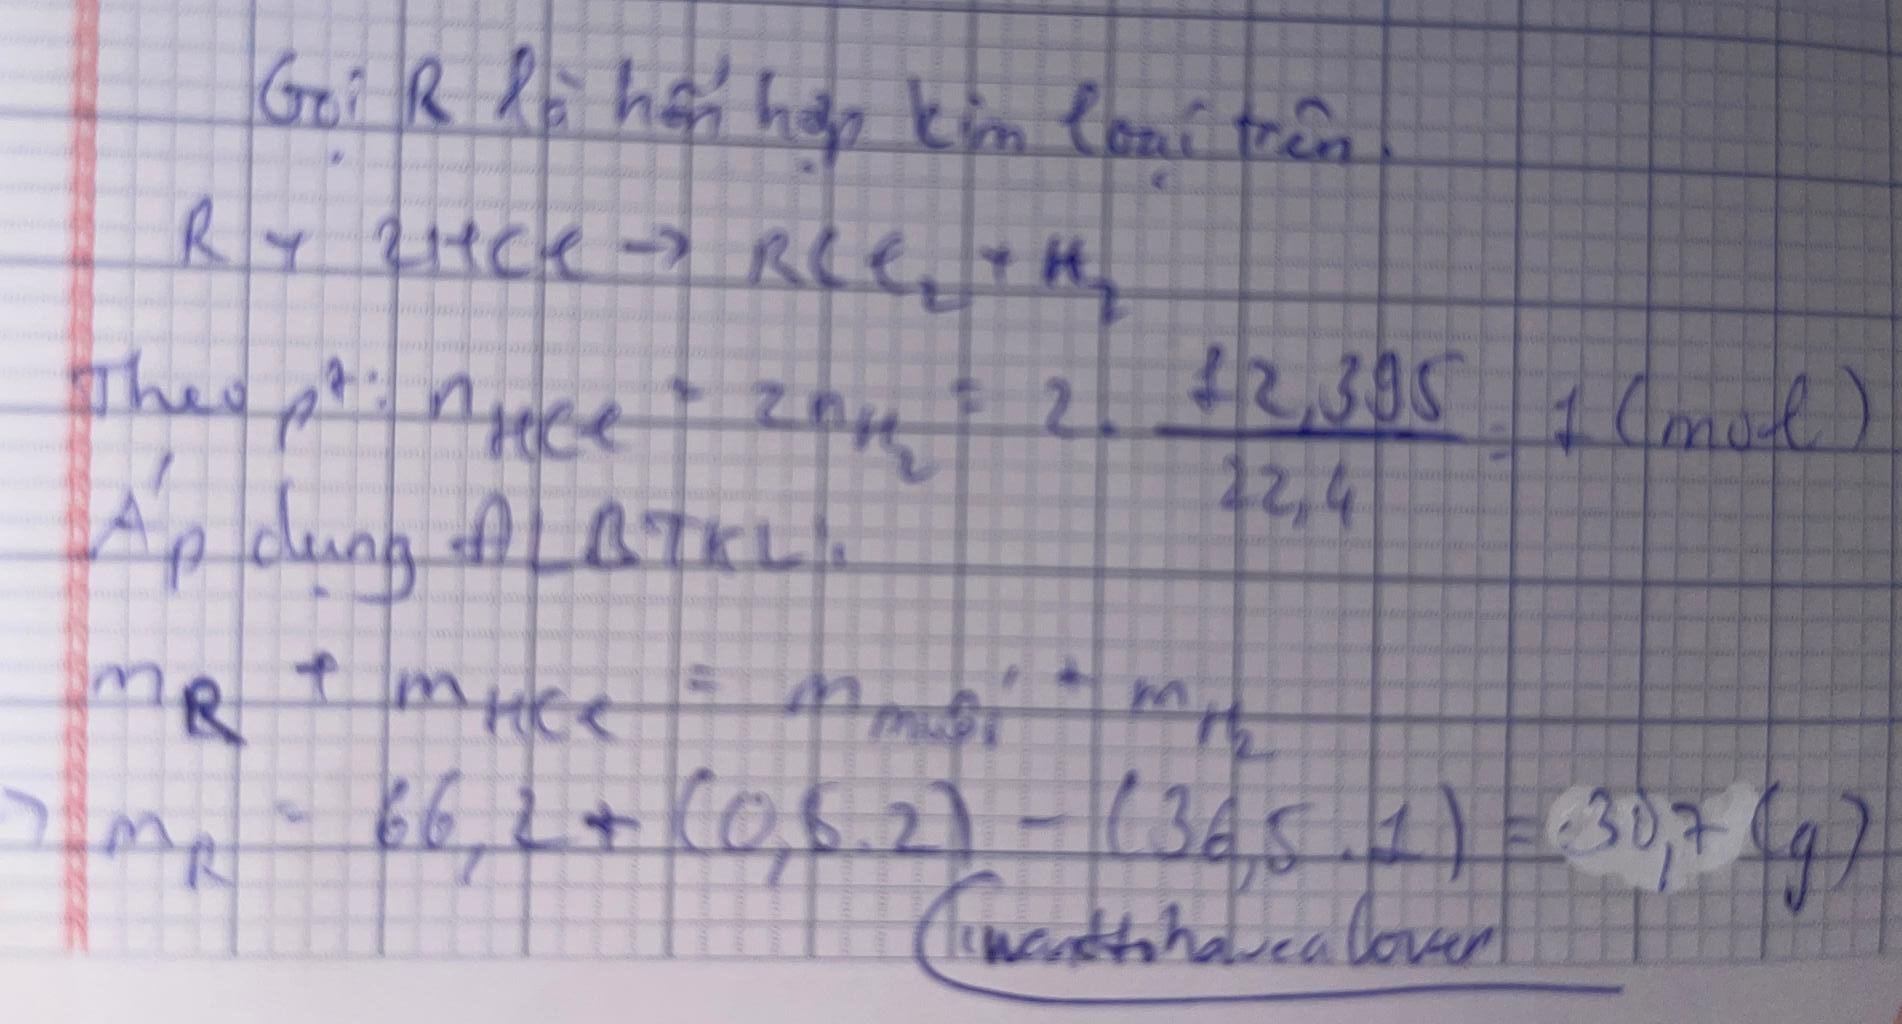 Gọi R là hỗn hợp kim loại trên.
R + 2HCl → RCl₂ + H₂
Theo pt: nHCl = 2nH₂ = 2. 12,395/22,4 = 1 (mol)
Áp dụng ĐLBTKL:
mR + mHCl = mmuối + mH₂
→ mR = 66,2 + (0,5.2) - (36,5.1) = 30,7 (g)
iwanttohavealover